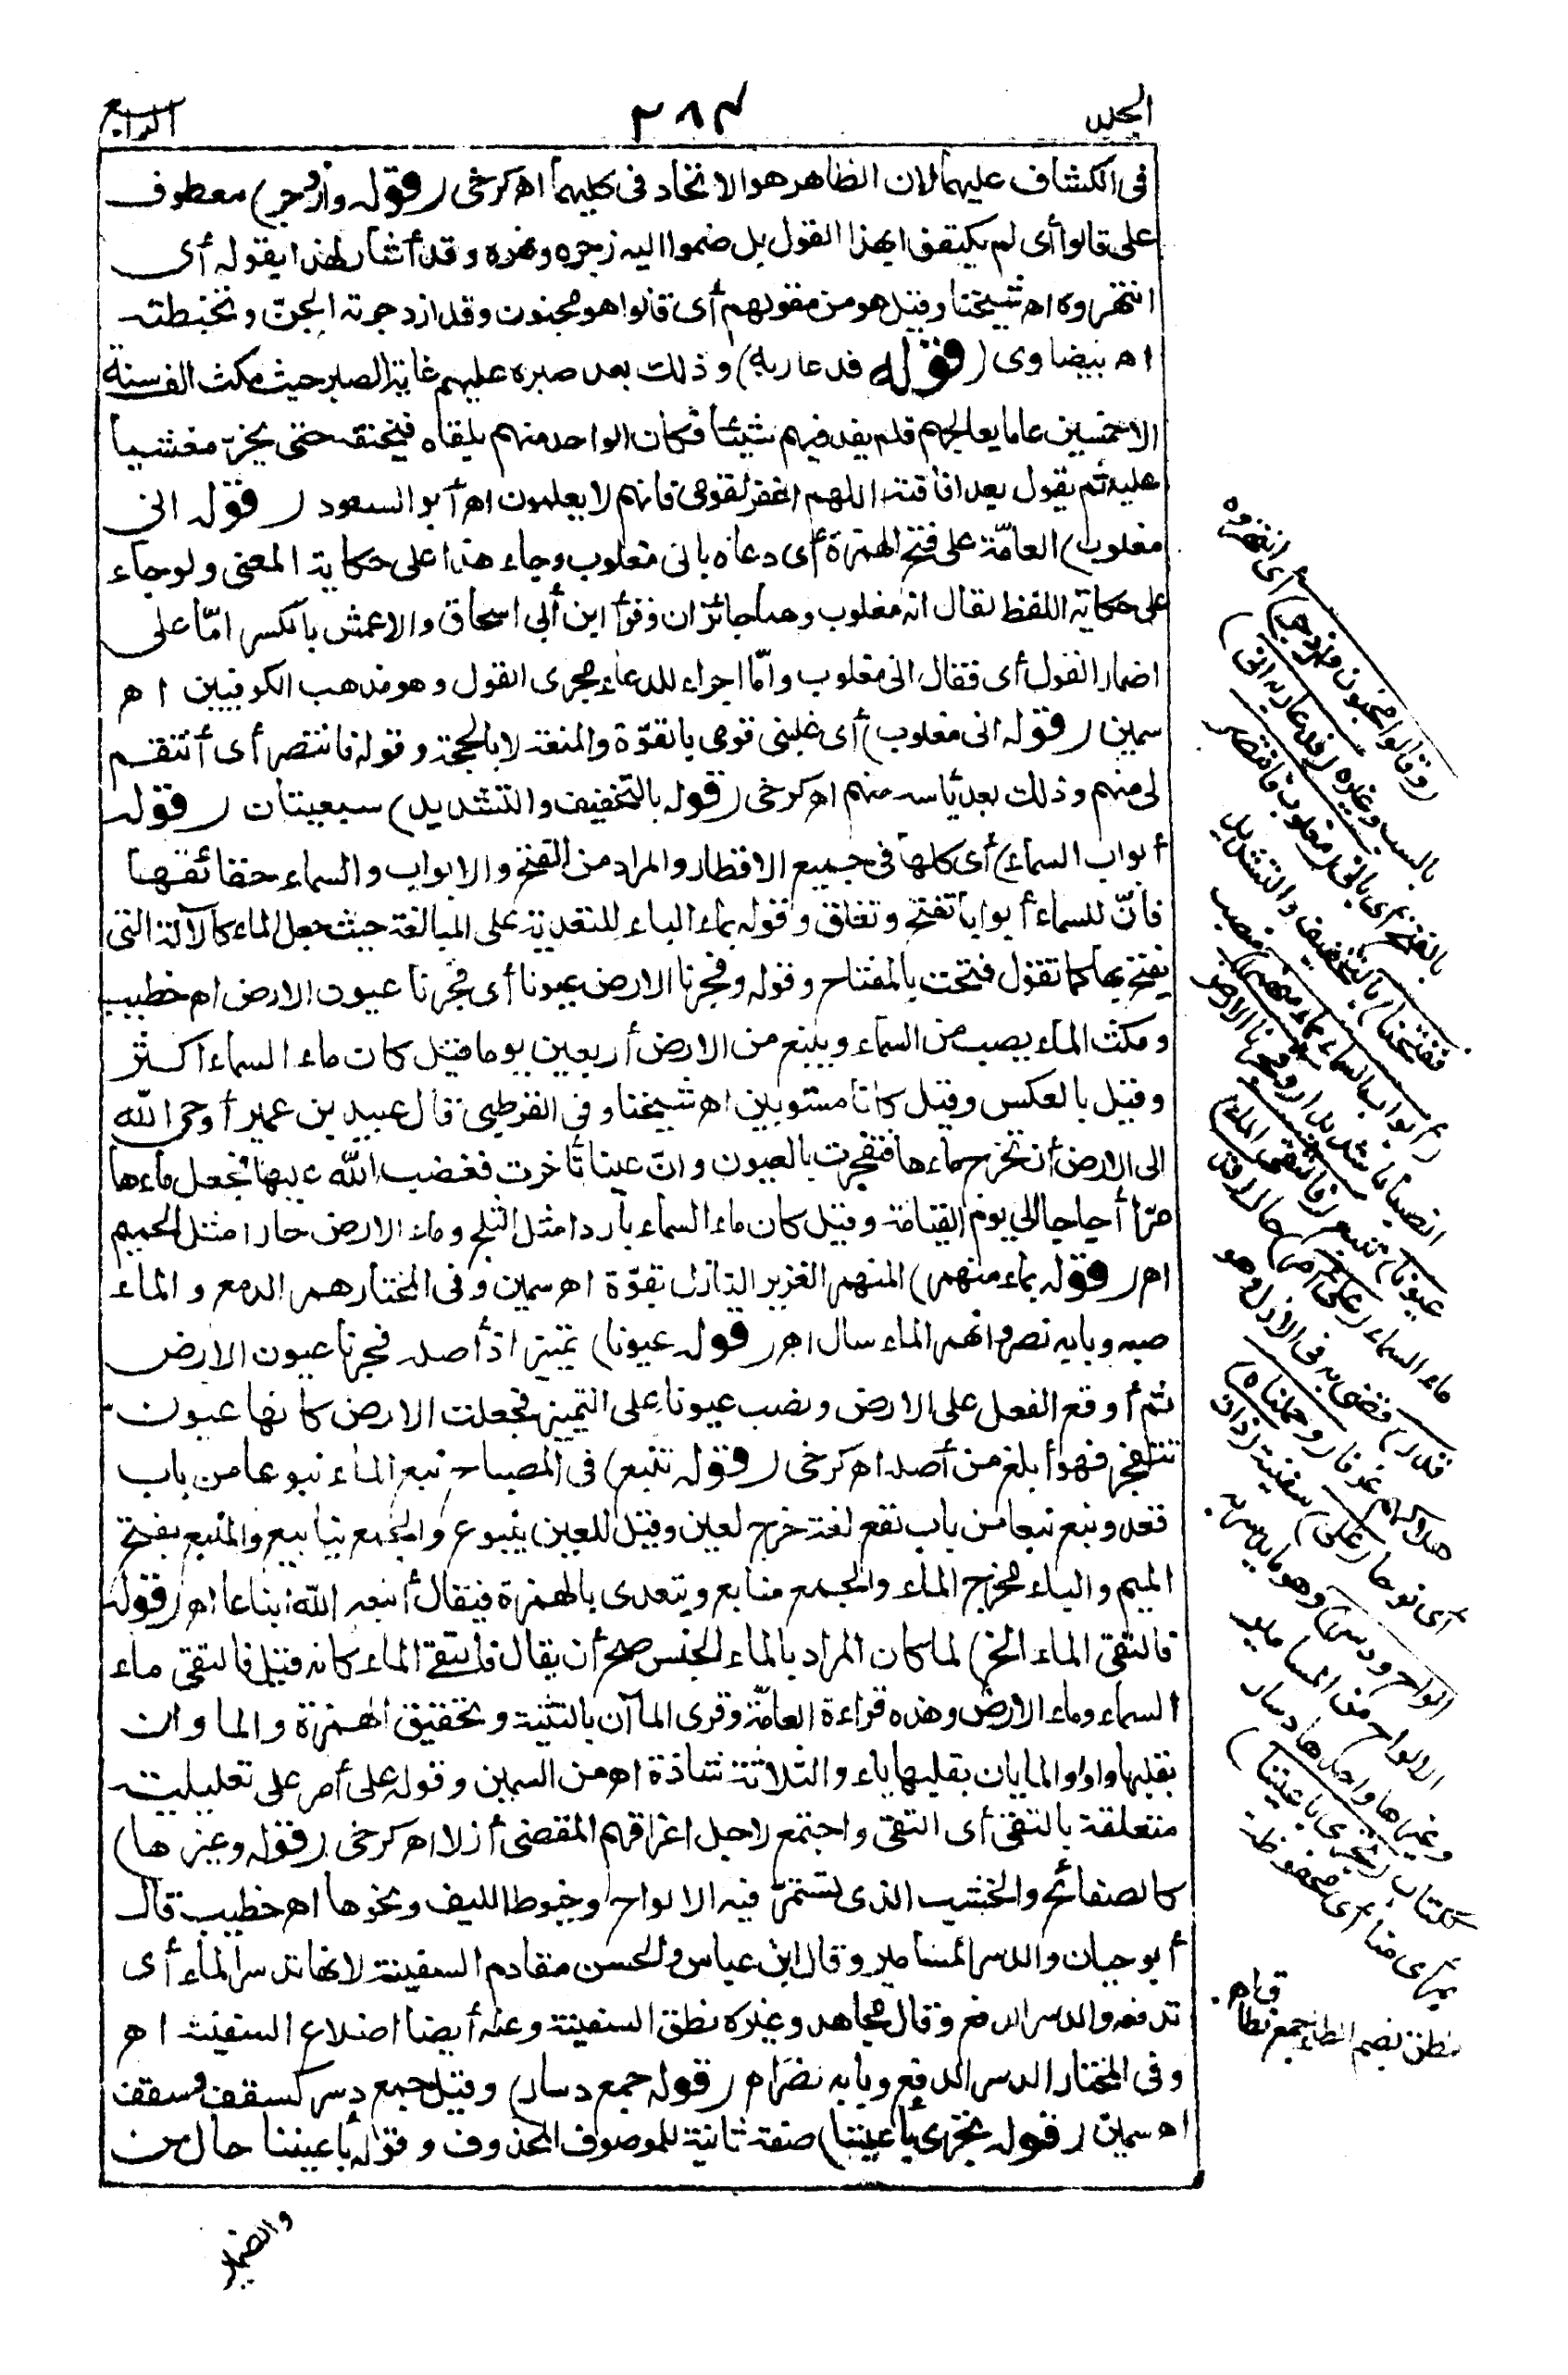 الجلد
٢٨٤
الرابع
فى الكشاف عليهما لان الظاهر هو الاتحاد فى كليهما اه كرخى (قوله وازدجر) معطوف
على قالوا أى لم يكتفوا بهذا القول بل ضموا اليه زجره ونهره وقد أشار لهذا بقوله أى
انتهروه اه شيخنا وقيل هو من مقولهم أى قالوا هو مجنون وقد ازدجرته الجنّ وتخبطته
اه بيضاوى (قوله فدعا ربه) وذلك بعد صبره عليهم غاية الصبر حيث مكث ألف سنة
الا خمسين عاما يعالجهم فلم يفد فيهم شيئا فكان الواحد منهم يلقاه فيخنقه حتى يخرّ مغشيا
عليه ثم يقول بعد افاقته اللهم اغفر لقومى فانهم لا يعلمون اه أبو السعود (قوله انى
مغلوب) العامّة على فتح الهمزة أى دعاه بانى مغلوب وجاء هذا على حكاية المعنى ولو جاء
على حكاية اللفظ لقال انه مغلوب وهما جائزان وقرأ ابن أبى اسحاق والاعمش بالكسر امّا على
اضمار القول أى فقال انى مغلوب وامّا اجراء للدعاء مجرى القول وهو مذهب الكوفيين اه
سمين (قوله انى مغلوب) أى غلبنى قومى بالقوّة والمنعة لا بالحجة وقوله فانتصر أى أنتقم
لى منهم وذلك بعد يأسه منهم اه كرخى (قوله بالتخفيف والتشديد) سبعيتان (قوله
أبواب السماء) أى كلها فى جميع الاقطار والمراد من الفتح والابواب والسماء حقائقها
فانّ للسماء أبوابا تفتح وتغلق وقوله بماء الباء للتعدية على المبالغة حيث جعل الماء كالآلة التى
يفتح بها كما تقول فتحت بالمفتاح وقوله وفجرنا الارض عيونا أى فجرنا عيون الارض اه خطيب
ومكث الماء يصب من السماء وينبع من الارض أربعين يوما قيل كان ماء السماء أكثر
وقيل بالعكس وقيل كانا مستويين اه شيخنا وفى القرطبى قال عبيد بن عمير أوحى الله
الى الارض أن تخرج ماءها فتفجرت بالعيون وانّ عينا تأخرت فغضب الله عليها فجعل ماءها
مرّا أجاجا الى يوم القيامة وقيل كان ماء السماء باردا مثل الثلج وماء الارض حارا مثل الحميم
اه (قوله بماء منهمر) المنهمر الغزير النازل بقوّة اه سمين وفى المختار همر الدمع والماء
صبه وبابه نصر وانهمر الماء سال اه (قوله عيونا) تمييز اذ أصله فجرنا عيون الارض
ثم أوقع الفعل على الارض ونصب عيونا على التمييز فجعلت الارض كانها عيون
تتفجر فهو أبلغ من أصله اه كرخى (قوله تنبع) فى المصباح نبع الماء نبوعا من باب
قعد ونبع نبعا من باب نفع لغة خرج لعين وقيل للعين ينبوع والجمع ينابيع والمنبع بفتح
الميم والباء مخرج الماء والجمع منابع ويتعدى بالهمزة فيقال أنبعه الله انباعا اه (قوله
فالتقى الماء الخ) لما كان المراد بالماء الجنس صح أن يقال فالتقى الماء كانه قيل فالتقى ماء
السماء وماء الارض وهذه قراءة العامّة وقرئ الماآن بالتثنية وتحقيق الهمزة والماوان
بقلبها واوا والمايان بقلبها ياء والثلاثة شاذة اه من السمين وقوله على أمر على تعليلية
متعلقة بالتقى أى التقى واجتمع لاجل اغراقهم المقضى أزلا اه كرخى (قوله وغيرها)
كالصفائح والخشب الذى تستمرّ فيه الالواح وخيوط الليف ونحوها اه خطيب قال
أبو حيان والدسر المسامير وقال ابن عباس والحسن مقادم السفينة لانها تدسر الماء أى
تدفعه والدسر الدفع وقال مجاهد وغيره نطق السفينة وعنه أيضا اضلاع السفينة اه
وفى المختار الدسر الدفع وبابه نصر اه (قوله جمع دسار) وقيل جمع دسر كسقف وسقف
اه سمين (قوله تجرى بأعيننا) صفة ثانية للموصوف المحذوف وقوله بأعيننا حال من
والضمير
(وقالوا مجنون وازدجر) أى انتهروه
بالسب وغيره (فدعا ربه انى)
بالفتح أى بانى (مغلوب فانتصر
ففتحنا) بالتخفيف والتشديد
(أبواب السماء بماء منهمر) منصب
انصبابا شديدا (وفجرنا الارض
عيونا) تنبع (فالتقى الماء)
ماء السماء (على أمر) حال (قد
قدر) قضى به فى الازل وهو
هلاكهم غرقا (وحملناه)
أى نوحا (على) سفينة (ذات
ألواح ودسر) وهو ما يدسر به
الالواح من المسامير
وغيرها واحدها دسار
ككتاب (تجرى بأعيننا)
بمرأى منا أى محفوظة
نطق بضم الطاء جمع نطاق اه